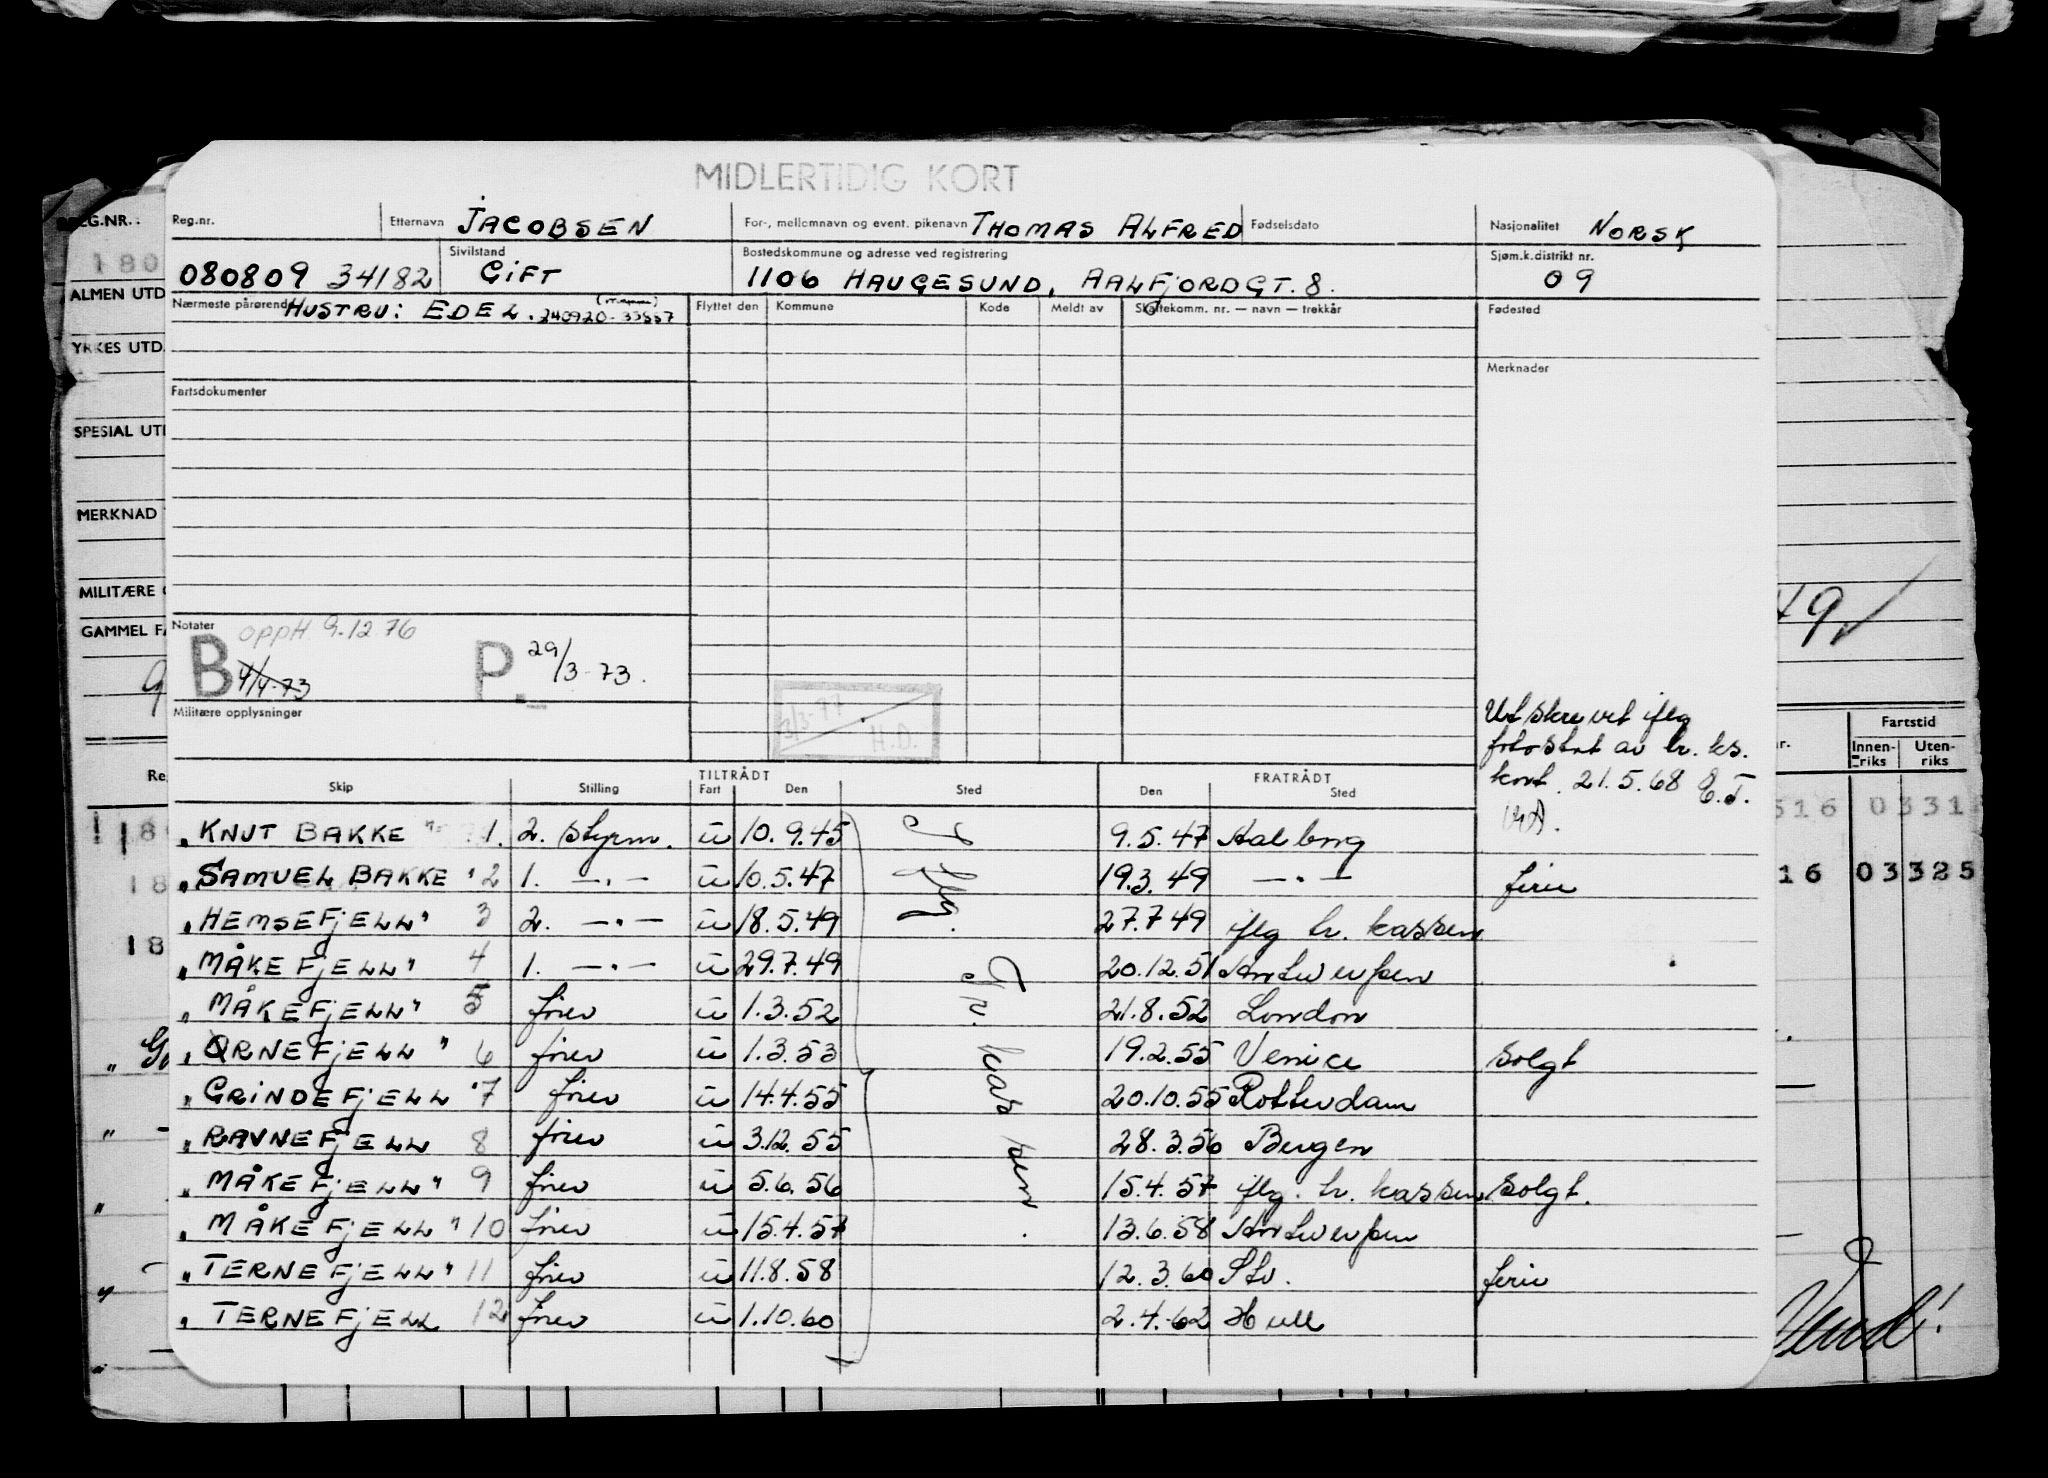 MIDLERTIDIG KORT
Reg.nr. Etternavn JACOBSEN For-, mellomnavn og event. pikenavn THOMAS ALFRED Fødselsdato Nasjonalitet NORSK
080809 34182 Sivilstand GIFT Bostedskommune og adresse ved registrering 1106 HAUGESUND, AALFJORDGT. 8. Sjøm.k.distrikt nr. 09
Nærmeste pårørende HUSTRU: EDEL. 240920-33557 Flyttet den Kommune Kode Meldt av Skattekomm. nr. — navn — trekkår Fødested
Merknader
Fartsdokumenter
Notater
B oppH 9.12 76
4/4-73
P. 29/3-73.
Militære opplysninger
3/3-77
H.D.
Utskrevet iflg
fotostat av tr. ks.
kort. 21.5.68 E.T.
TILTRÅDT FRATRÅDT
Skip Stilling Fart Den Sted Den Sted
Iflg. Tr. kassen.
„KNUT BAKKE" 1. 2. styrm. u 10.9.45 9.5.47 Aalborg
„SAMUEL BAKKE" 2 1. —"— u 10.5.47 19.3.49 —"— ferie
„HEMSEFJELL" 3 2. —"— u 18.5.49 27.7.49 iflg tr. kassen
„MÅKEFJELL" 4 1. —"— u 29.7.49 20.12.51 Antwerpen
„MÅKEFJELL" 5 fører u 1.3.52 21.8.52 London
„ØRNEFJELL" 6 fører u 1.3.53 19.2.55 Venice solgt
„GRINDEFJELL" 7 fører u 14.4.55 20.10.55 Rotterdam
„RAVNEFJELL 8 fører u 3.12.55 28.3.56 Bergen
„MÅKEFJELL" 9 fører u 5.6.56 15.4.57 iflg. tr. kassen solgt.
„MÅKEFJELL" 10 fører u 15.4.57 13.6.58 Antwerpen
„TERNEFJELL" 11 fører u 11.8.58 12.3.60 Stv. ferie
„TERNEFJELL 12 fører u 1.10.60 2.4.62 Hull
REG.NR.:
180
ALMEN UTD
YRKES UTD.
SPESIAL UTD
MERKNAD
MILITÆRE
GAMMEL FA
Re
18
18
18
49
Fartstid
nr. Innen-riks Uten-riks
516 0331
16 03325
Vend!